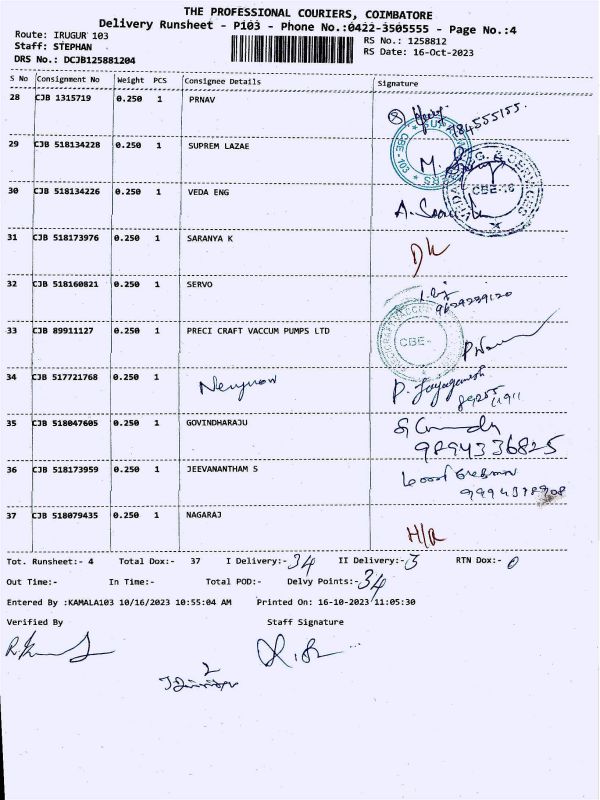 THE PROFESSIONAL COURIERS, COIMBATORE
Delivery Runsheet - P103 - Phone No.:0422-3505555 - Page No.:4
Route: IRUGUR 103 RS No.: 1258812
Staff: STEPHAN RS Date: 16-Oct-2023
DRS No.: DCJB125881204
S No Consignment No Weight PCS Consignee Details Signature
28 CJB 1315719 0.250 1 PRNAV
29 CJB 518134228 0.250 1 SUPREM LAZAE
30 CJB 518134226 0.250 1 VEDA ENG
31 CJB 518173976 0.250 1 SARANYA K DK
32 CJB 518160821 0.250 1 SERVO
33 CJB 89911127 0.250 1 PRECI CRAFT VACCUM PUMPS LTD CBE-
34 CJB 517721768 0.250 1 P. Jayaganesh
35 CJB 518047605 0.250 1 GOVINDHARAJU 9894336825
36 CJB 518173959 0.250 1 JEEVANANTHAM S
37 CJB 518079435 0.250 1 NAGARAJ H/R
Tot. Runsheet:- 4 Total Dox:- 37 I Delivery:- 34 II Delivery:- 3 RTN Dox:- 0
Out Time:- In Time:- Total POD:- Delvy Points:- 34
Entered By :KAMALA103 10/16/2023 10:55:04 AM Printed On: 16-10-2023 11:05:30
Verified By Staff Signature